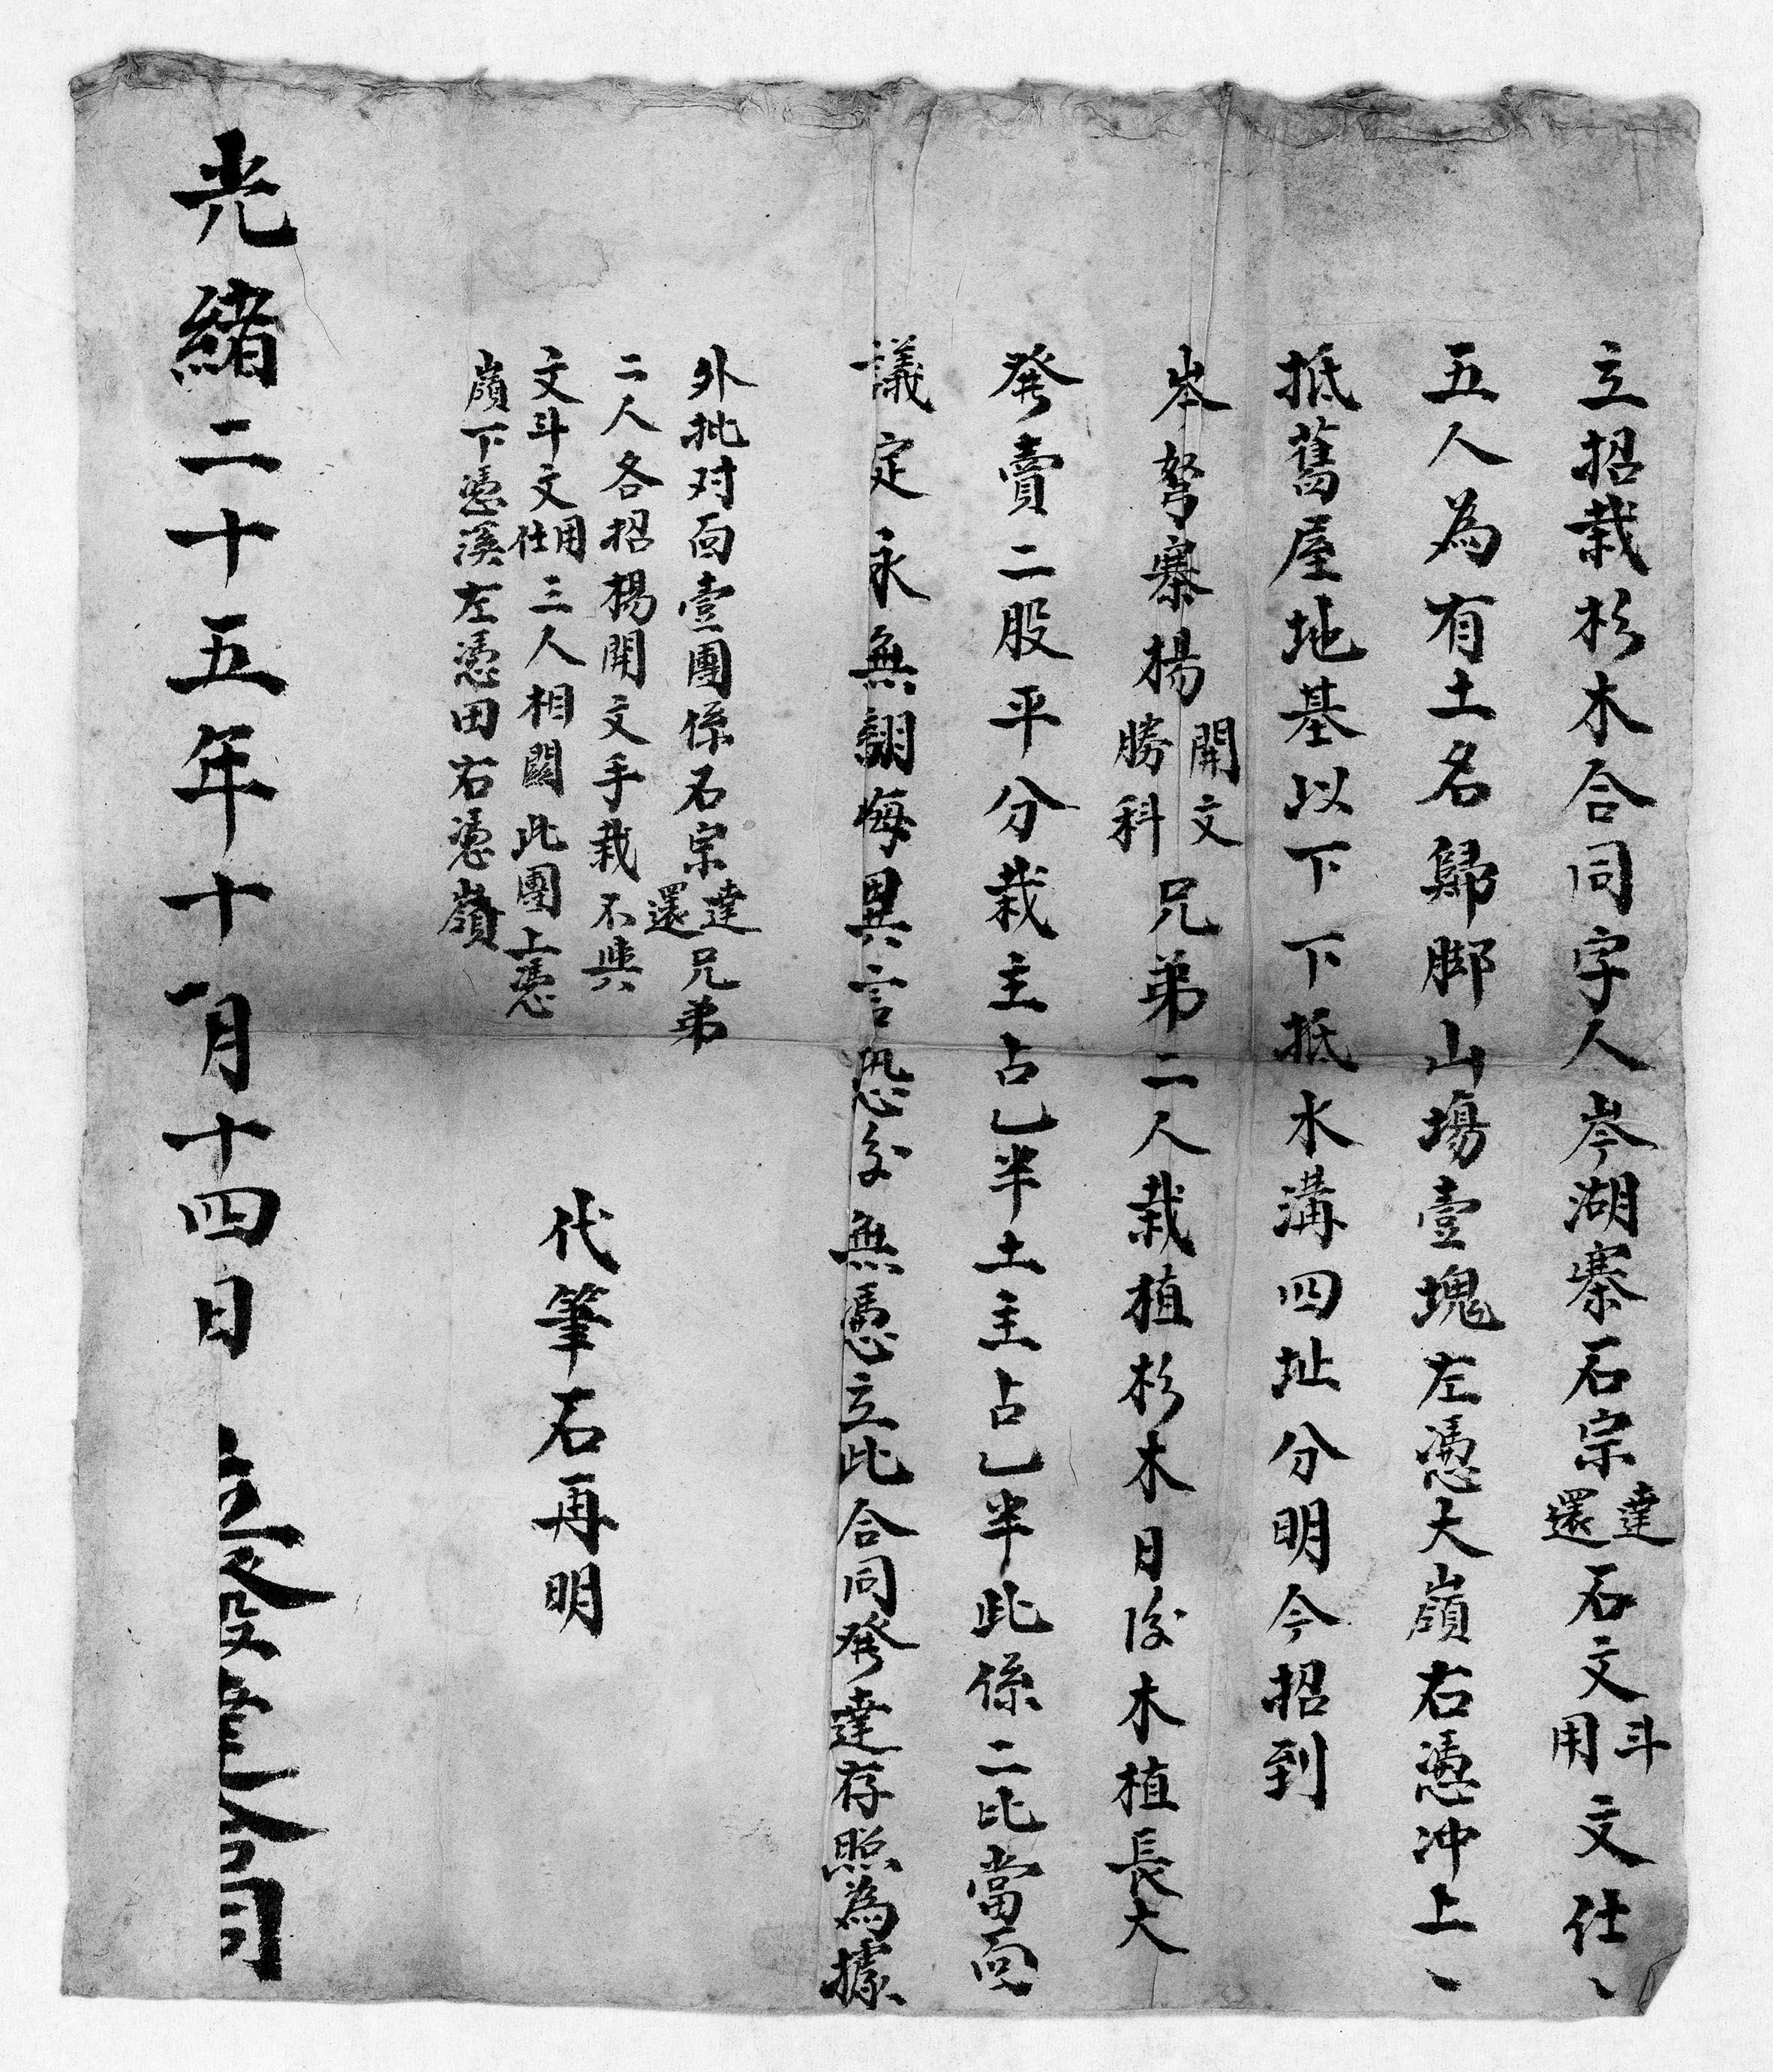 立招栽杉木合同字人岑湖寨石宗達還石文斗用文仕、
五人為有土名歸脚山塲壹塊左憑大嶺右憑冲上、
抵舊屋地基以下下抵水溝四址分明今招到
岑努寨楊開文勝科兄弟二人栽植杉木日後木植長大
發賣二股平分栽主占乚半土主占乚半此係二比當面
議定永無翻悔異言恐後無憑立此合同發達存照為據
外批对面壹團係石宗達還兄弟
二人各招楊開文手栽不與
文斗文用仕三人相關此團上憑
嶺下憑溪左憑田右憑嶺
代筆石再明
光緒二十五年十一月十四日